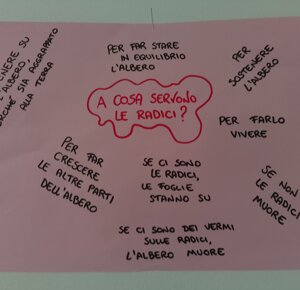 TENERE SU
L'ALBERO,
PERCHÉ SIA AGGRAPPATO
ALLA TERRA
PER FAR STARE
IN EQUILIBRIO
L'ALBERO
PER
SOSTENERE
L'ALBERO
A COSA SERVONO
LE RADICI?
PER FARLO
VIVERE
PER FAR
CRESCERE
LE ALTRE PARTI
DELL'ALBERO
SE CI SONO
LE RADICI,
LE FOGLIE
STANNO SU
SE NON
LE RADICI
MUORE
SE CI SONO DEI VERMI
SULLE RADICI,
L'ALBERO MUORE